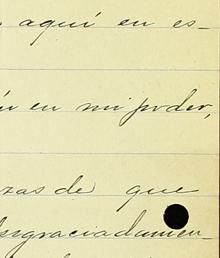 aquí en es-
en mi poder,
zas de que
sgraciadamen-